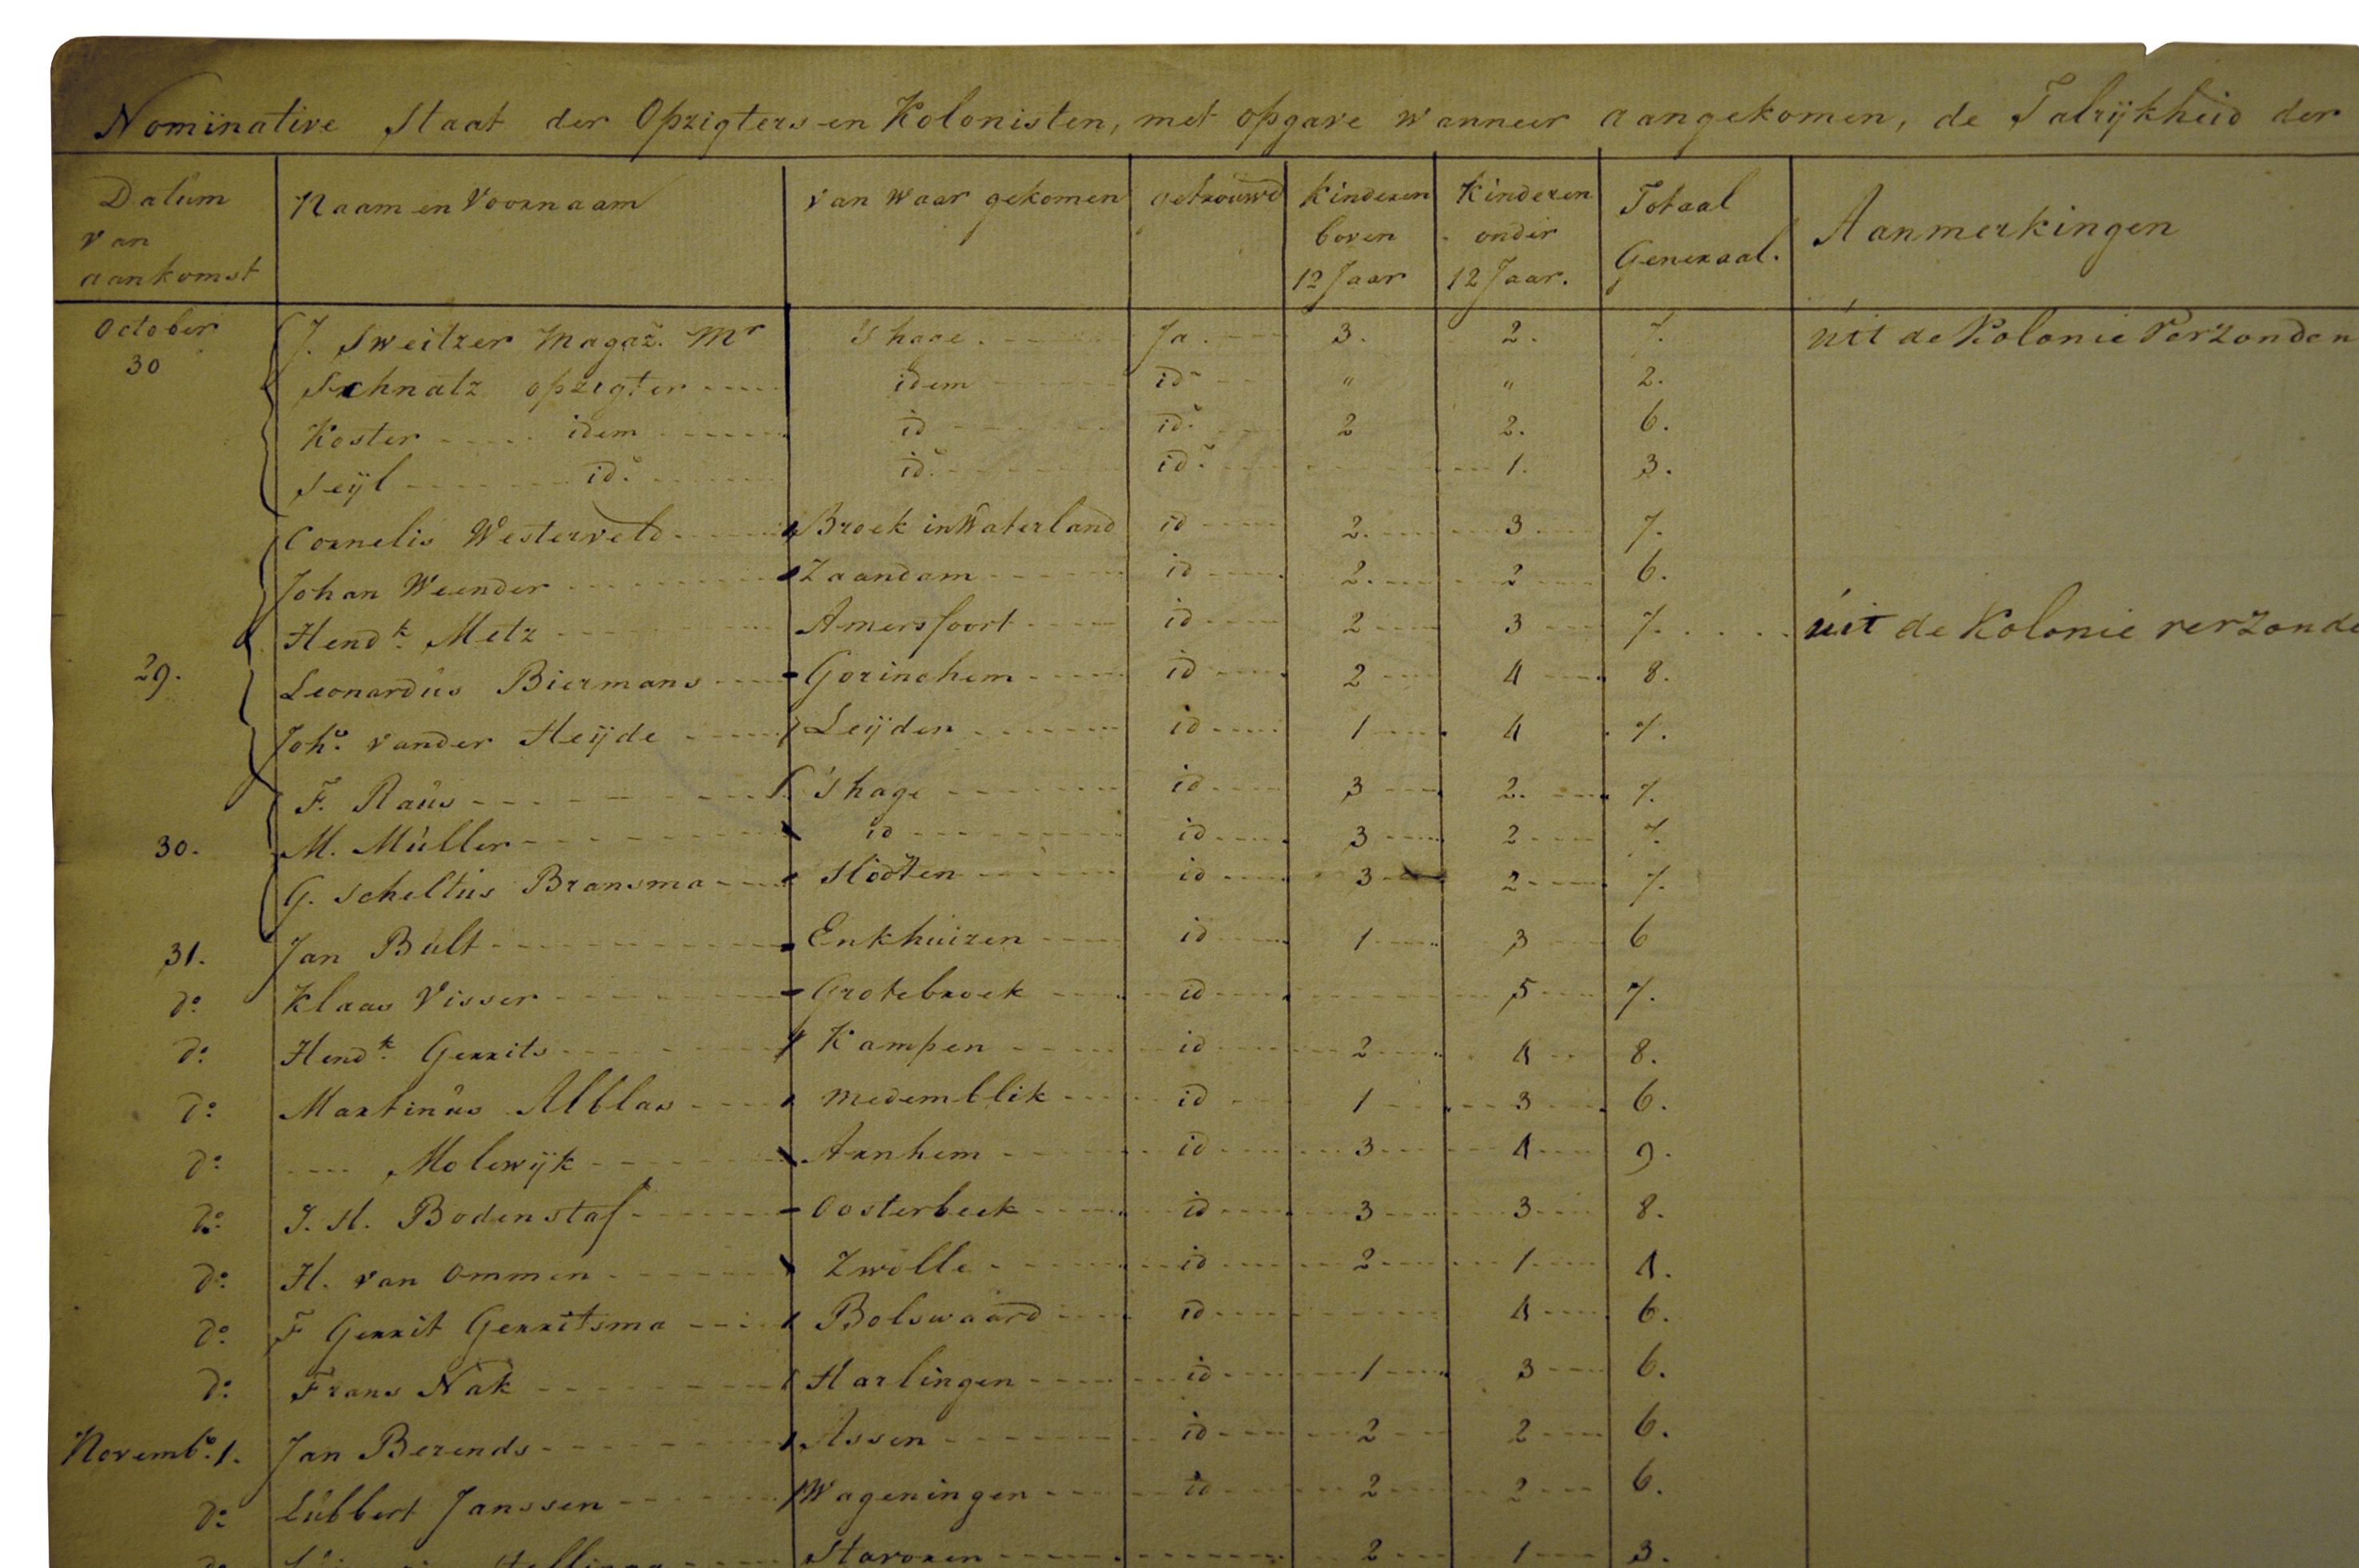 Nominative Staat der Opzigters en Kolonisten, met opgave wanneer aangekomen, de Talrijkheid der
Datum van aankomst Naam en Voornaam van waar gekomen Getrouwd Kinderen boven 12 Jaar Kinderen onder 12 Jaar. Totaal Generaal. Aanmerkingen
October 30 J. Sweitzer Magaz. Mr 's hage. Ja. 3. 2. 7. uit de Kolonie Verzonden
Schnatz opzigter idem id " " 2.
Koster idem id id. 2 2. 6.
Seijl id. id. id. 1. 3.
Cornelis Westerveld Broek in Waterland id 2. 3 7.
Johan Weender Zaandam id 2. 2 6.
Hendk. Metz Amersfoort id 2 3 7. uit de Kolonie verzonde
29. Leonardus Biermans Gorinchem id 2 4 8.
Joho. vander Heijde Leijden id 1 4 7.
F. Raus 's hage id 3 2. 7.
30. M. Muller id id 3 2 7.
G. Scheltus Bransma Slooten id 3 2 7.
31. Jan Bult Enkhuizen id 1 3 6
do Klaas Visser Grotebroek id 5 7.
do Hendk. Gerrits Kampen id 2 4 8.
do Martinus Alblas Medemblik id 1 3 6.
do Molewijk Arnhem id 3 4 9.
do J. H. Bodenstaf Oosterbeek id 3 3 8.
do H. van Ommen Zwolle id 2 1 4.
do F Gerrit Gerritsma Bolswaard id 4 6.
do Frans Nak Harlingen id 1 3 6.
Novembo. 1. Jan Berends Assen id 2 2 6.
do Lubbert Janssen Wageningen id 2 2 6.
do Stavoren 2 1 3.